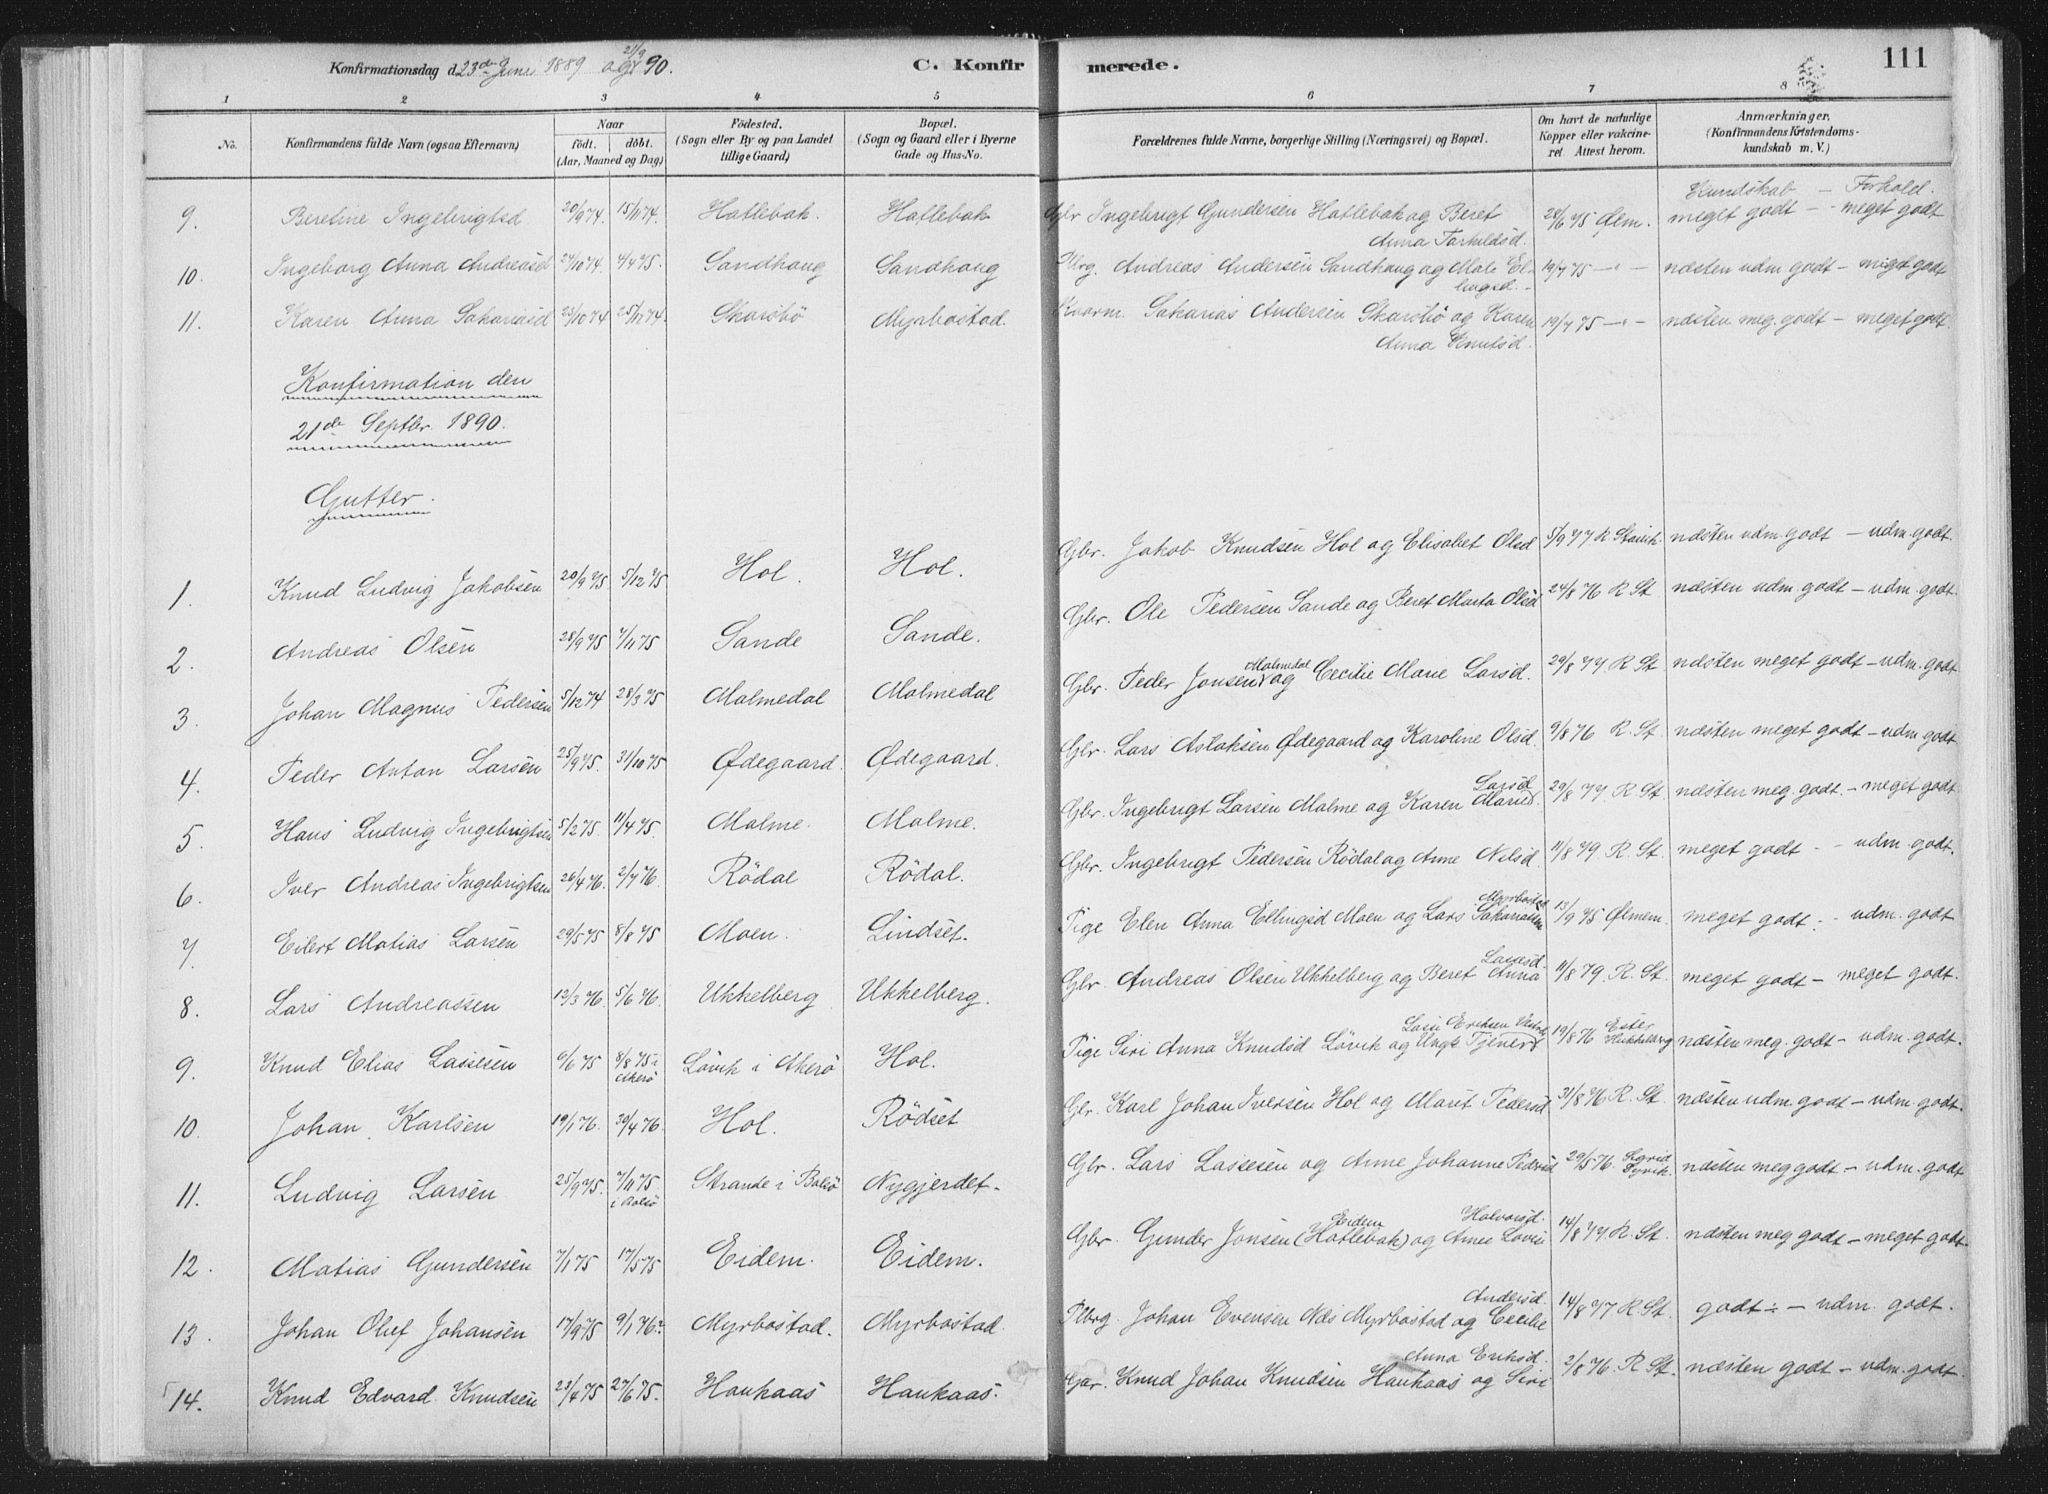 Konfirmationsdag d. 23de Juni 1889 og 21/9 90. C. Konfirmerede. 111
1 2 3 4 5 6 7 8
No. Konfirmandens fulde Navn (ogsaa Efternavn). Naar født. døbt. (Aar, Maaned og Dag) Födested. (Sogn eller By og paa Landet tillige Gaard) Bopæl. (Sogn og Gaard eller i Byerne Gade og Hus-No. Forældrenes fulde Navne, borgerlige Stilling (Næringsvei) og Bopæl. Om havt de naturlige Kopper eller vakcineret. Attest herom. Anmærkninger. (Konfirmandens Kristendomskundskab m. V.)
Kundskab – Forhold.
9. Beretine Ingebrigtsd 20/9 74. 15/11 74. Hatlebak. Hatlebak Gbr Ingebrigt Gundersen Hatlebak og Beret Anna Torkildsd. 28/6 75 Ølm. meget godt – meget godt
10. Ingeborg Anna Andreasd 24/10 74. 4/4 75. Sandhoug Sandhoug Andreas Andersen Sandhaug og Male Ellingsd. 19/7 75 –"– næsten udm godt – meget godt
11. Karen Anna Sakariasd 23/10 74 25/12 74. Skarsbö Myrbostad. Sakarias Andersen Skarsbö og Karen Anna Knutsd. 19/7 75 –"– næsten meg. godt – meget godt.
Konfirmation den
21de Septbr. 1890.
Gutter.
1. Knud Ludvig Jakobsen 20/9 75 5/12 75 Hol. Hol. Gbr. Jakob Knudsen Hol og Elisabet Olsd 5/9 77 R Stavik næsten udm. godt – udm. godt.
2. Andreas Olsen 28/9 75 7/11 75 Sande Sande. Gbr. Ole Pedersen Sande og Beret Marta Olsd 24/8 76 R. St. næsten udm. godt – udm. godt.
3. Johan Magnus Pedersen 5/12 74 28/3 75 Malmedal Malmedal Gbr. Peder Jonsen Malmedal og Cecilie Marie Larsd. 29/8 77 R. St. næsten meget godt – udm. godt
4. Peder Anton Larsen 25/9 75. 31/10 75 Ødegaard. Ødegaard. Gbr. Lars Aslaksen Ødegaard og Karoline Olsd. 9/8 76 R. St. næsten meget godt – udm godt
5. Hans Ludvig Ingebrigtsen 5/2 75. 11/4 75. Malme. Malme. Gbr. Ingebrigt Larsen Malme og Karen Marie Larsd. 29/8 77 R. St. næsten meg. godt. – meget godt
6. Iver Andreas Ingebrigtsen 26/4 76. 2/7 76. Rödal Rödal. Gbr. Ingebrigt Pedersen Rödal og Anne Nilsd. 11/8 79. R. St. meget godt – udm. godt.
7. Eilert Matias Larsen 29/5 75 8/8 75 Moen. Lindset. Pige Elen Anna Ellingsd Moen og Lars Sakariassen Myrbostad 13/9 75 Ølmem. meget godt – udm. godt
8. Lars Andreassen 12/3 76. 5/6 76. Ukkelberg Ukkelberg. Gbr. Andreas Olsen Ukkelberg og Beret Anna Larsd. 11/8 79. R. St. meget godt – meget godt.
9. Knud Elias Lassesen 6/6 75 8/8 75 i Akerö Lövik i Akerö Hol. Pige Siri Anna Knudsd Lövik og Ungk. Lasse Eriksen 19/8 76 næsten meg. godt – udm. godt.
10. Johan Karlsen 19/1 76. 30/4 76. Hol. Rödset Gbr. Karl Johan Iversen Hol og Marit Pedersd 31/8 76 R. St. næsten udm. godt – udm. godt.
11. Ludvig Larsen 25/9 75. 7/11 75 i Bolsö Strande i Bolsö Nygjerdet. Gbr. Lars Lassesen og Anne Johanne Pedersd 29/5 76. næsten meg godt – udm. godt
12. Matias Gundersen 7/1 75 17/5 75 Eidem. Eidem. Gbr. Gunder Jonsen Eidem (Hatlebak) og Anne Lovise Halvorsd. 14/8 77 R. St. næsten meg godt – meget godt.
13. Johan Oluf Johansen 17/9 75 9/1 76. Myrbostad. Myrbostad. Plbrg. Johan Evensen Næs Myrbostad og Cecilie Andersd. 14/8 77 R. St. godt – udm. godt.
14. Knud Edvard Knudsen 23/4 75 27/6 75. Haukaas Haukaas. Gbr. Knud Johan Knudsen Haukaas og Siri Anna Eriksd. 2/8 76. R. St. næsten godt – udm. godt.